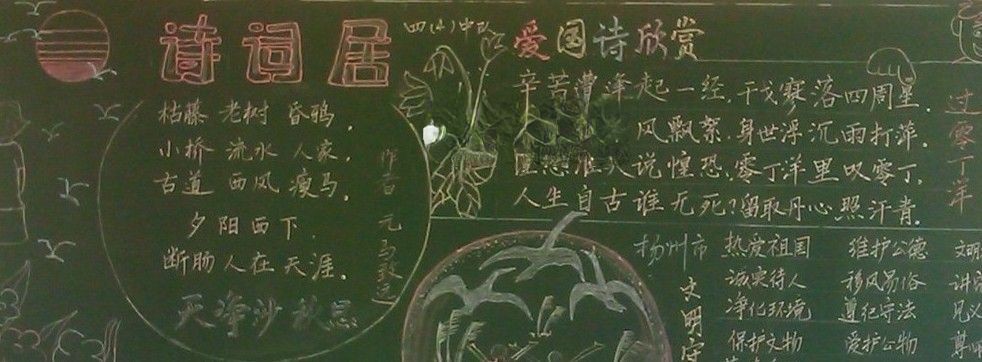 诗词居
四(4)中队
枯藤 老树 昏鸦，
小桥 流水 人家，
古道 西风 瘦马，
夕阳西下，
断肠人在天涯。
天净沙秋思
作者 元马致远
爱国诗欣赏
辛苦遭逢起一经，干戈寥落四周星。
风飘絮，身世浮沉雨打萍。
惶恐滩头说惶恐，零丁洋里叹零丁。
人生自古谁无死？留取丹心照汗青。
过零丁洋
扬州市文明守
热爱祖国 维护公德 文明
诚实待人 移风易俗 讲
净化环境 遵纪守法 见义
保护文物 爱护公物 尊师